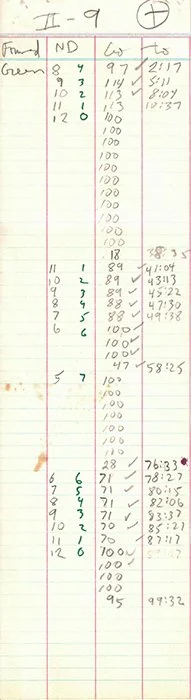 II-9 +
Found ND Go to
Green 8 4 97 ✓ 2:17
9 3 114 ✓ 5:11
10 2 113 ✓ 8:04
11 1 113 10:37
12 0 100
100
100
100
100
100
100
100
100
100
100
18 38:35
11 1 89 ✓ 41:04
10 2 89 ✓ 43:13
9 3 89 ✓ 45:22
8 4 88 ✓ 47:30
7 5 88 ✓ 49:38
6 6 100 ✓
100 ✓
100 ✓
47 ✓ 58:25
5 7 100
100
100
100
100
100
28 ✓ 76:33
6 6 71 ✓ 78:27
7 5 71 ✓ 80:15
8 4 71 ✓ 82:06
9 3 71 ✓ 83:37
10 2 70 ✓ 85:21
11 1 70 ✓ 87:17
12 0 100 ✓
100 ✓
100
100
95 99:32